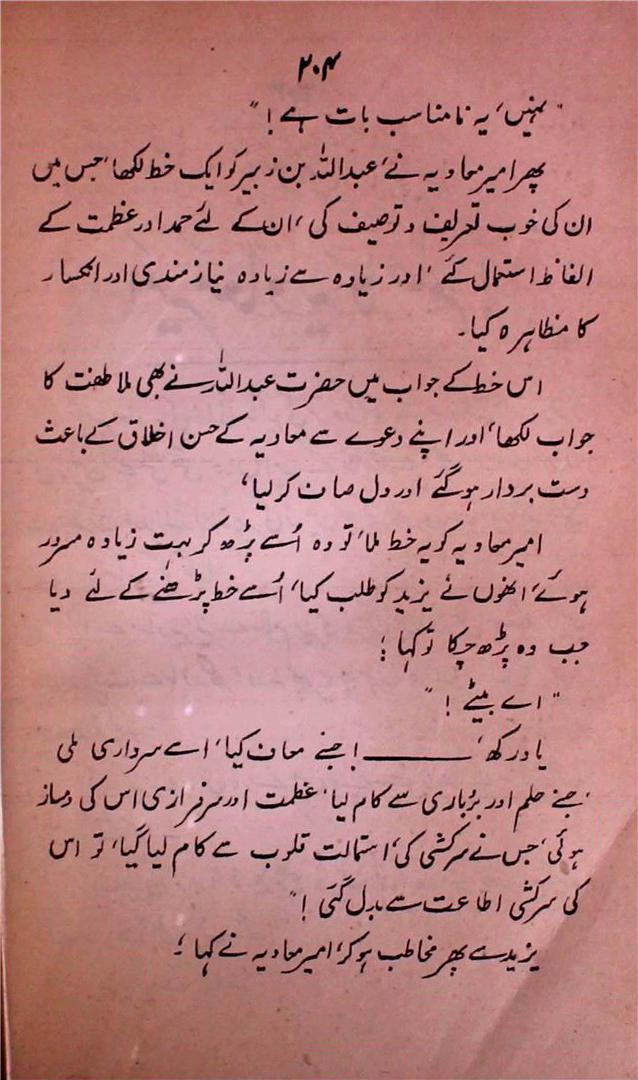 ۲۰۴
"نہیں، یہ نامناسب بات ہے!"
پھر امیر معاویہ نے، عبداللہ بن زبیر کو ایک خط لکھا، جس میں
ان کی خوب تعریف و توصیف کی، ان کے لئے حمد اور عظمت کے
الفاظ استعمال کئے، اور زیادہ سے زیادہ نیاز مندی اور انکسار
کا مظاہرہ کیا۔
اس خط کے جواب میں حضرت عبداللہ نے بھی ملاطفت کا
جواب لکھا، اور اپنے دعوے سے معاویہ کے حسن اخلاق کے باعث
دست بردار ہوگئے اور دل صاف کر لیا،
امیر معاویہ کو یہ خط ملا، تو وہ اُسے پڑھ کر بہت زیادہ مسرور
ہوئے، انھوں نے یزید کو طلب کیا، اُسے خط پڑھنے کے لئے دیا
جب وہ پڑھ چکا تو کہا؛
"اے بیٹے!"
یاد رکھ، ــــــــــ! جنے معاف کیا، اسے سرداری ملی
،جنے حلم اور بڑباری سے کام لیا، عظمت اور سرفرازی اس کی دمساز
ہوئی، جس نے سرکشی کی، استمالت قلوب سے کام لیا گیا، تو اس
کی سرکشی اطاعت سے بدل گئی!"
یزید سے پھر مخاطب ہو کر، امیر معاویہ نے کہا؛۔